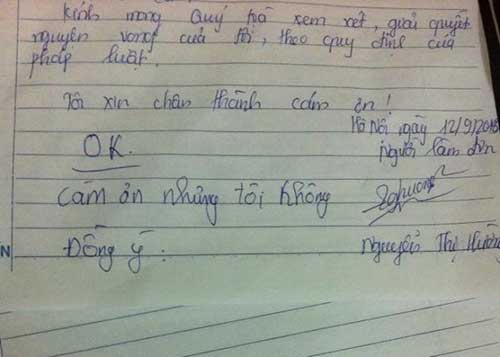 kính mong Quý toà xem xét, giải quyết
nguyện vọng của tôi, theo quy định của
pháp luật.
Tôi xin chân thành cảm ơn!
Hà Nội ngày 12/9/20
Người làm đơn
OK.
cảm ơn nhưng tôi không
Đồng ý.
Nguyễn Thị Hường
N